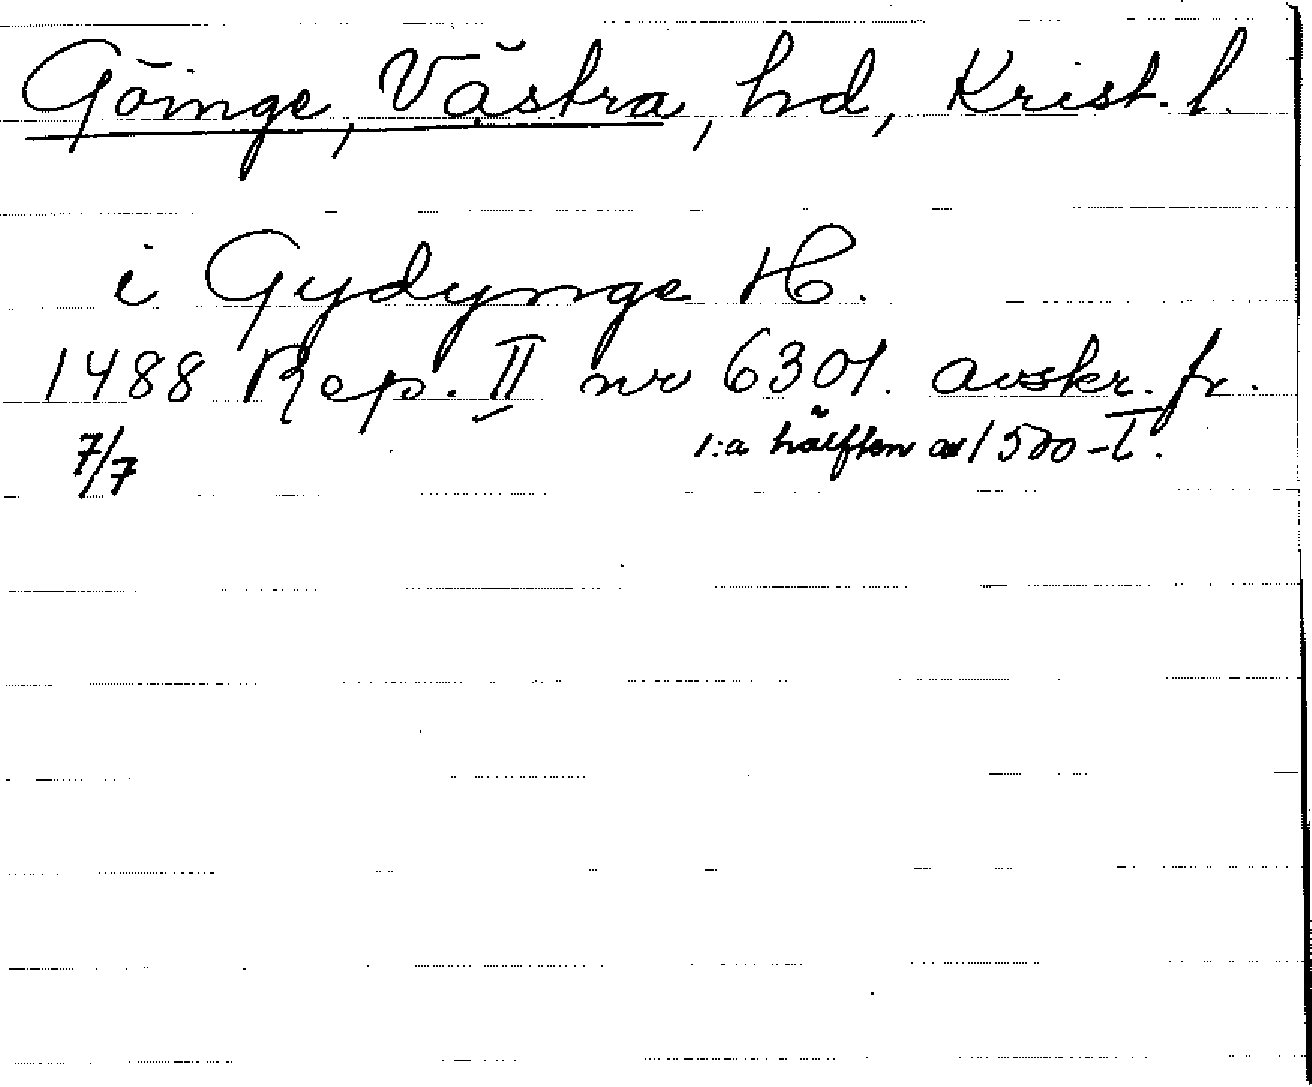 Göinge, Västra, hd, Krist. l.
i Gydynge H.
1488 Rep. II nr 6301. avskr. fr.
7/7 1:a hälften av 1500-t.